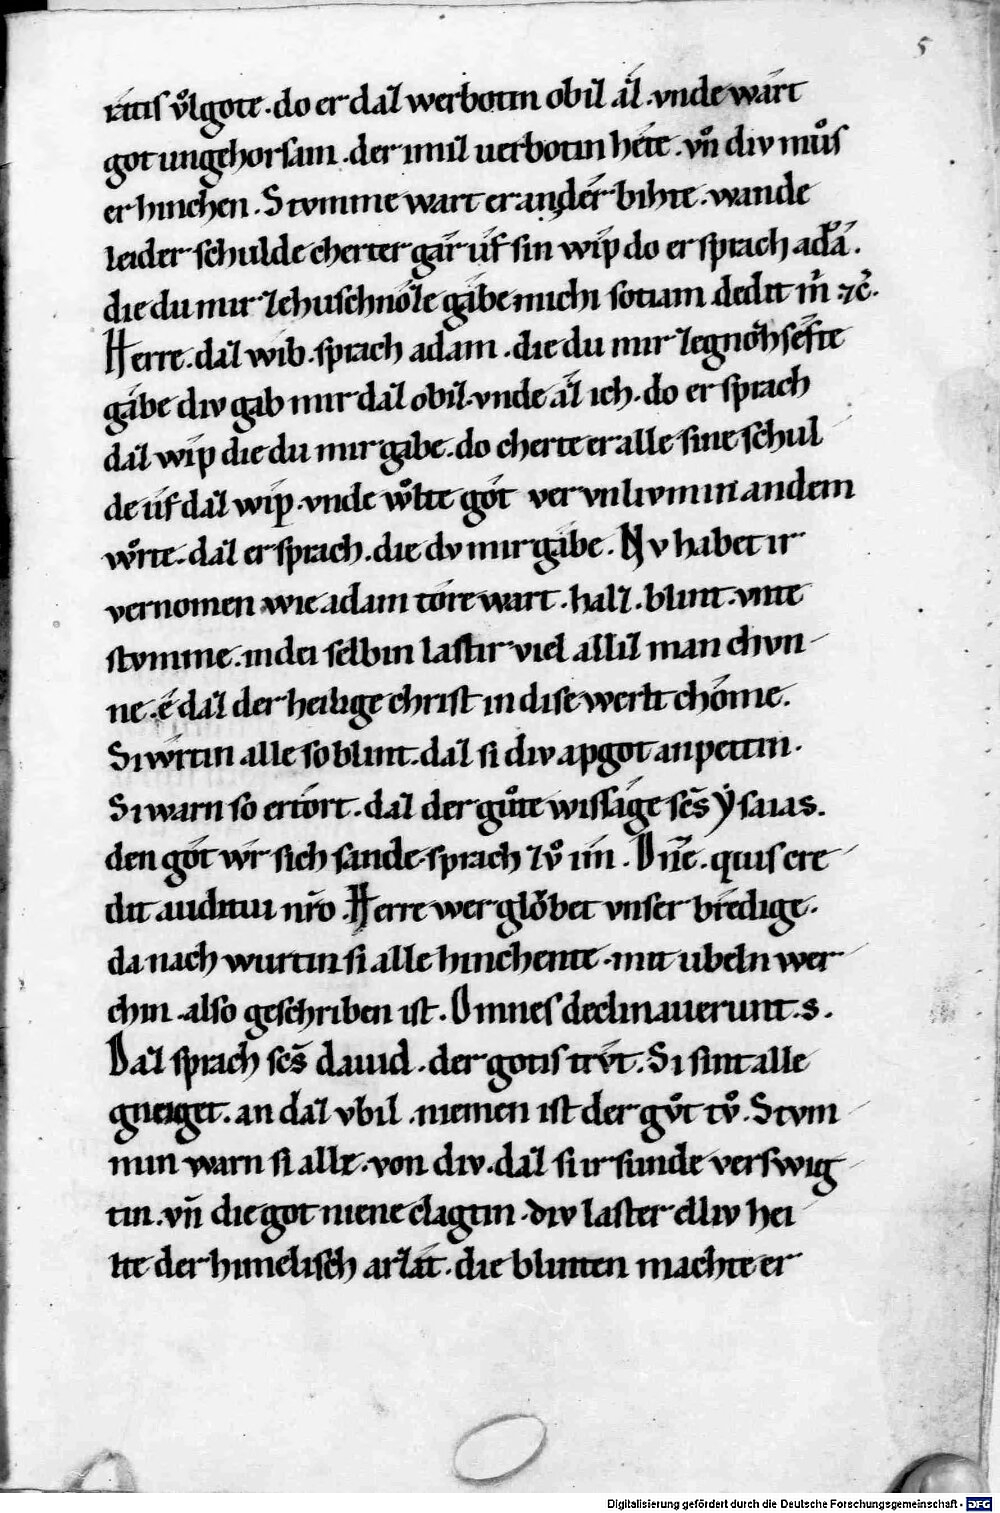 5
ratis uͦlgote. do er daʒ werbotin obiʒ âʒ. vnde wárt
got ungehorsam. der imiʒ uerbotin hête. vn̄ div muͦs
er hinchen. Stvmme wart er an der bihte. wande
leider schulde cherter gâr ûf sin wîp do er sprach adā.
die du mir ʒehuschnôʒe gâbe michi sotiam dedit m̄ ⁊c̄.
Herre. daʒ wib. sprach adam. die du mir ʒegnoͮhsêfte
gâbe div gab mir daʒ obiʒ. vnde âʒ ich. do er sprach
daʒ wîp die du mir gâbe. do cherte er alle sine schul
de ûf daʒ wîp. vnde wͦlte gôt ver vnlivmin an dem
wͦrte. daʒ er sprach. die dv mir gâbe. Nv habet ir
vernomen wie adam tôre wart. halʒ. blint. vnte
stvmme. in dei selbin lastir viel alliʒ man chvn
ne. ê daʒ der heilige christ in dise werlt chôme.
Si wͦrtin alle so blint. daʒ si div apgot anpettin.
Si warn so ertôrt. daʒ der guͦte wissâge scs̄ ẏsaias.
den gôt wr sich sande. sprach ʒvͦ im. Dn̄e. quis cre
dit auditui nr̄o. Herre wer gloͮbet vnser brêdige.
da nach wurtin si alle hinchente. mit ubeln wer
chin. also geschriben ist. Omnes declinauerunt. s.
Daʒ sprach scs̄ dauid. der gotis trv̂t. Si sint alle
gneiget. an daʒ vbil. niemen ist der gvͦt tvͦ. Stvm
min warn si alle. von div. daʒ si ir sunde verswig
tin. vn̄ die got niene clagtin. div laster elliv hei
lte der himelisch arʒât. die blinten machte er
Digitalisierung gefördert durch die Deutsche Forschungsgemeinschaft - DFG